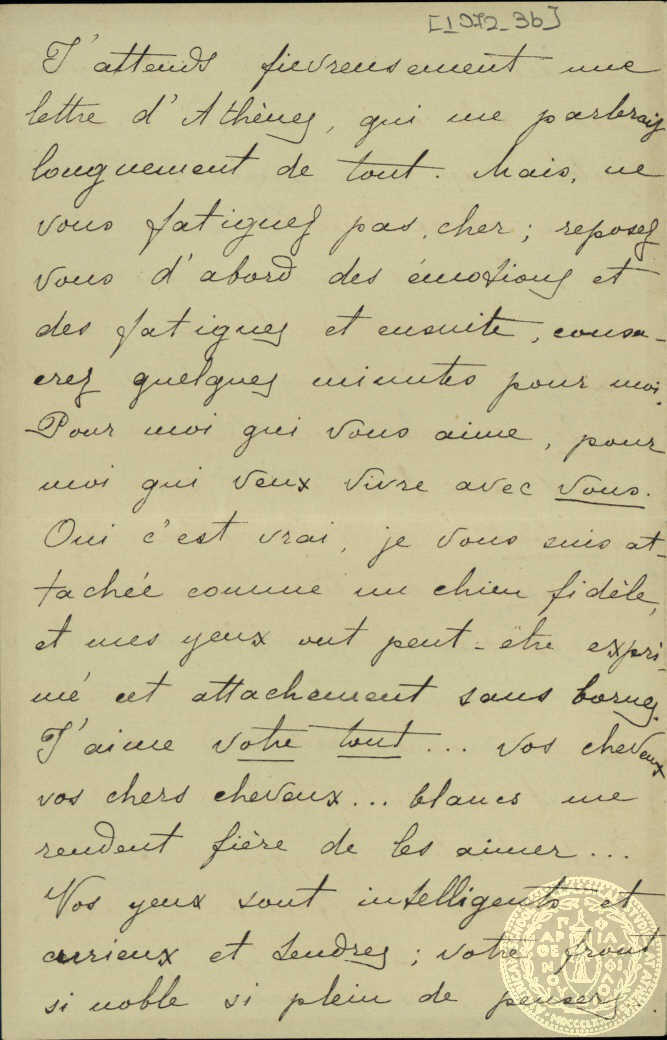 [1972-36]
J'attends fievreusement une
lettre d'Athènes, qui me parlerais
longuement de tout. Mais, ne
vous fatiguez pas, cher; reposez
vous d'abord des émotions et
des fatigues et ensuite, consa-
crez quelques minutes pour moi.
Pour moi qui vous aime, pour
moi qui veux vivre avec vous.
Oui c'est vrai, je vous suis at-
tachée comme un chien fidèle,
et mes yeux ont peut-être expri-
mé cet attachement sans bornes.
J'aime votre tout... vos cheveux
vos chers cheveux... blancs me
rendent fière de les aimer...
Vos yeux sont intelligents et
curieux et tendres; votre front
si noble si plein de pensers.